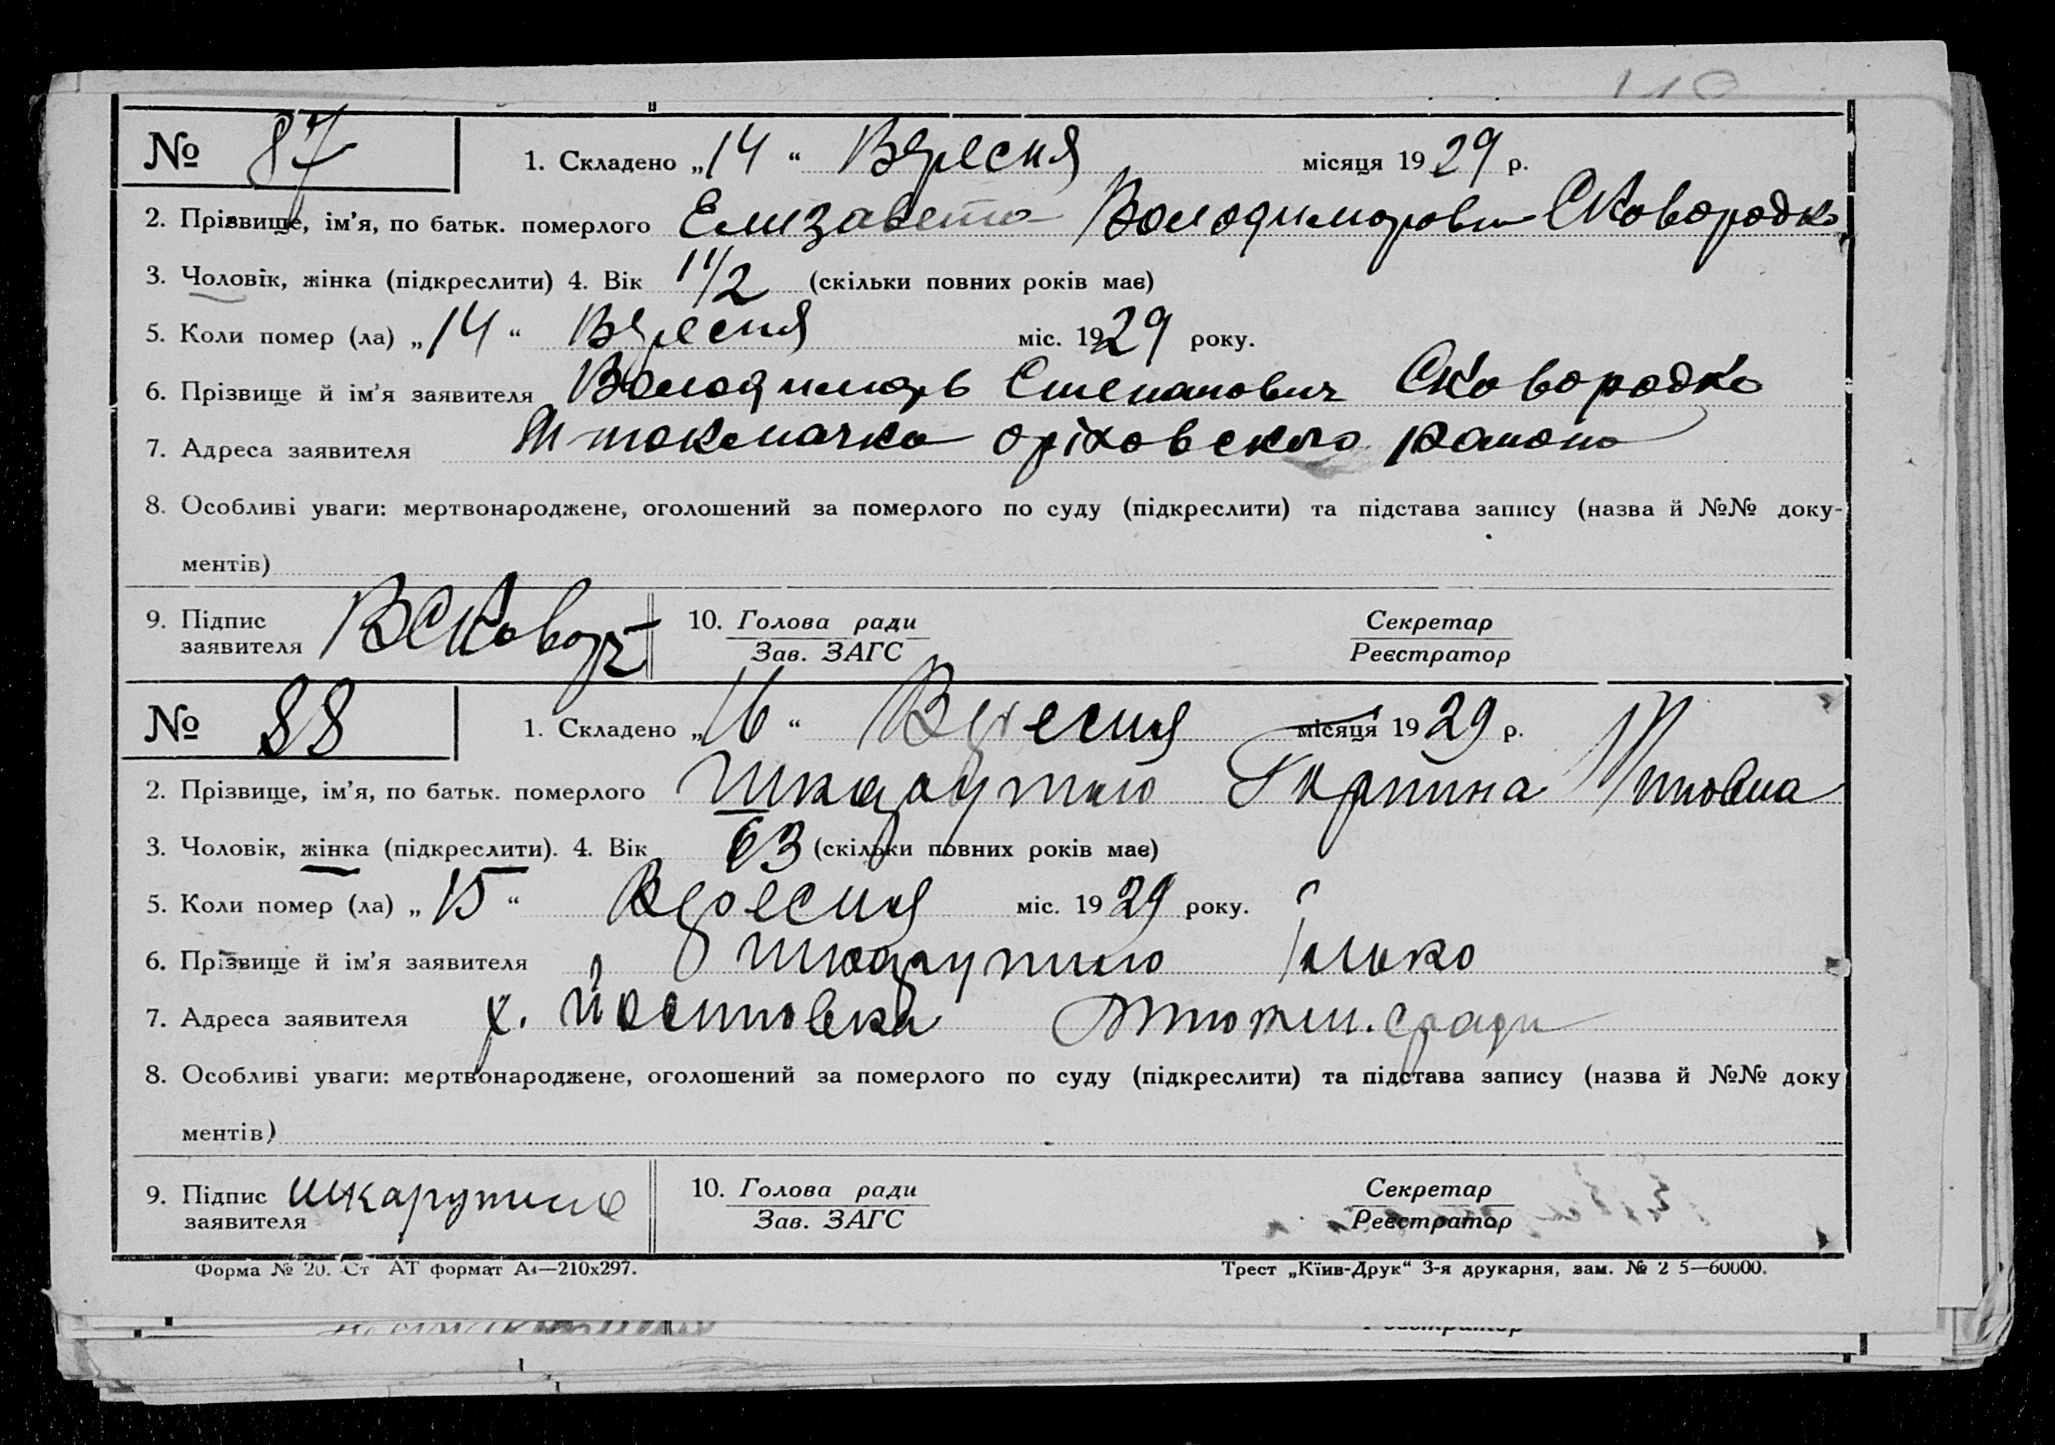 110
№ 87 1. Складено „14“ Вересня місяця 1929 р.
2. Прізвище, ім’я, по батьк. померлого Елизавета Володимировна Сковородко
3. Чоловік, жінка (підкреслити) 4. Вік 1 1/2 (скільки повних років має)
5. Коли помер (ла) „14“ Вересня міс. 1929 року.
6. Прізвище й ім’я заявителя Володимирь Степанович Сковородко
7. Адреса заявителя М токмачка оріховского района
8. Особливі уваги: мертвонароджене, оголошений за померлого по суду (підкреслити) та підстава запису (назва й №№ доку-
ментів)
9. Підпис заявителя ВСковор 10. Голова ради Секретар
Зав. ЗАГС Реєстратор
№ 88 1. Складено „16“ Вересня місяця 1929 р.
2. Прізвище, ім’я, по батьк. померлого Шкарупило Горпина
3. Чоловік, жінка (підкреслити). 4. Вік 63 (скільки повних років має)
5. Коли помер (ла) „15“ Вересня міс. 1929 року.
6. Прізвище й ім’я заявителя Шкарупило Ілько
7. Адреса заявителя х.
8. Особливі уваги: мертвонароджене, оголошений за померлого по суду (підкреслити) та підстава запису (назва й №№ доку
ментів)
9. Підпис заявителя шкарупило 10. Голова ради Секретар
Зав. ЗАГС Реєстратор
Форма № 20. Ст АТ формат А4—210х297. Трест „Київ-Друк“ 3-я друкарня, зам. № 2 5—60000.